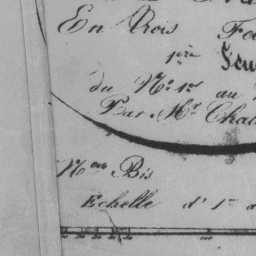 En Trois Fe
1re Feu
du No. 1er au
Par Mr. Cha
Non Bis
Echelle d' 1 a